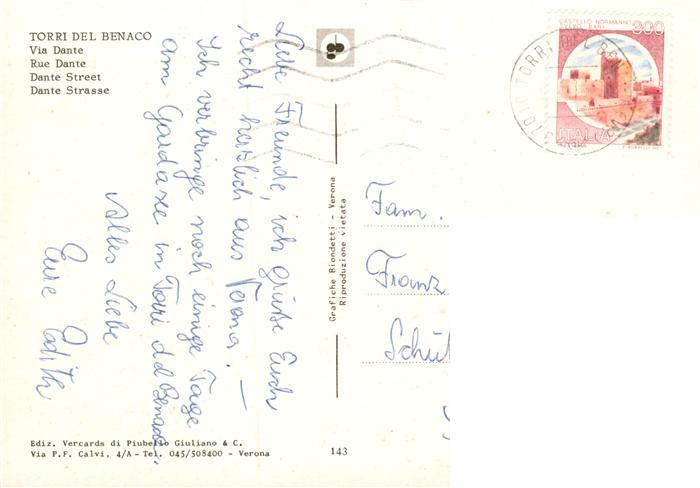 TORRI DEL BENACO
Via Dante
Rue Dante
Dante Street
Dante Strasse
Liebe Freunde, ich grüße Euch
recht herzlich aus Verona. —
Ich verbringe noch einige Tage
am Gardasee in Torri del Benaco.
Alles Liebe
Eure Edith
Grafiche Biondetti - Verona
Riproduzione vietata
CASTELLO NORMANNO
SVEVO BARI
300
ITALIA
TORRI DEL BEN
Fam.
Franz
Schül
Ediz. Vercards di Piubello Giuliano & C.
Via P.F. Calvi, 4/A - Tel. 045/508400 - Verona
143